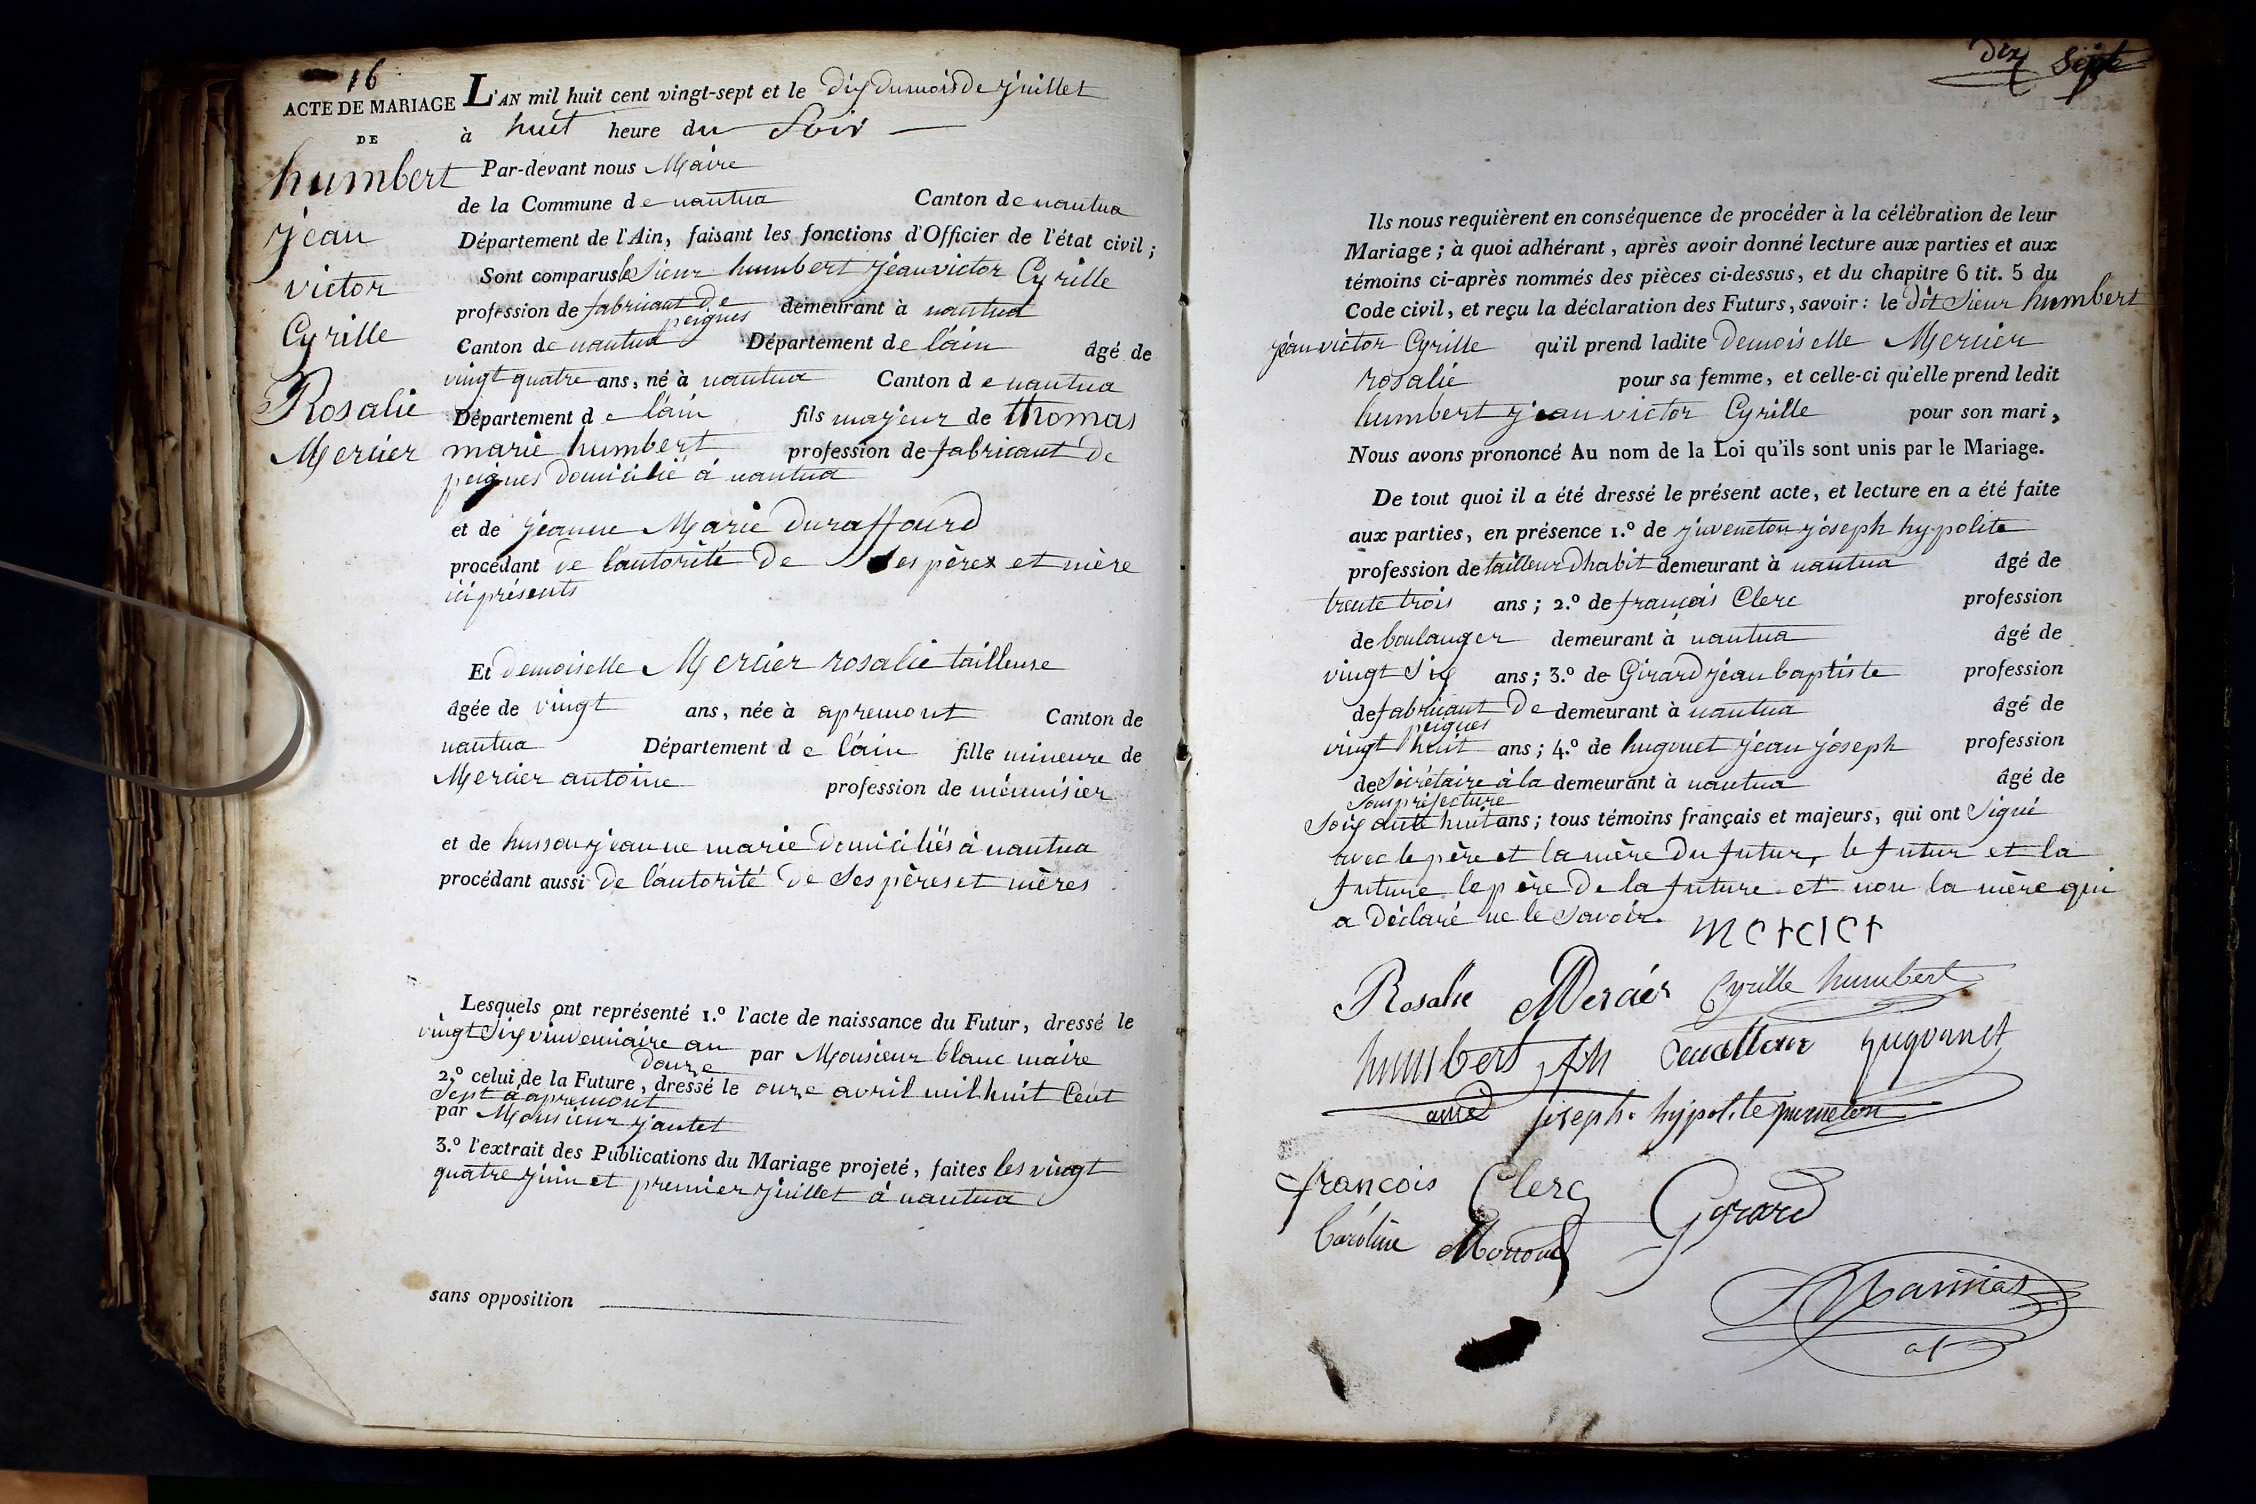 16
ACTE DE MARIAGE
DE
humbert
jean
victor
Cyrille
Rosalie
Mercier
L'AN mil huit cent vingt-sept et le dix du mois de juillet
à huit heure du Soir
Par-devant nous Maire
de la Commune de nantua Canton de nantua
Département de l'Ain, faisant les fonctions d'Officier de l'état civil ;
Sont comparus le Sieur humbert jean victor Cyrille
profession de fabricant de peignes demeurant à nantua
Canton de nantua Département de l'ain âgé de
vingt quatre ans, né à nantua Canton de nantua
Département de l'ain fils majeur de thomas
marie humbert profession de fabricant de
peignes domicilié à nantua
et de jeanne Marie Duraffourd
procédant de l'autorité de ses pères et mère
ici présents
Et demoiselle Mercier rosalie tailleuse
âgée de vingt ans, née à apremont Canton de
nantua Département de l'ain fille mineure de
Mercier antoine profession de ménuisier
et de husson jeanne marie domiciliés à nantua
procédant aussi de l'autorité de Ses pères et mères
Lesquels ont représenté 1.º l'acte de naissance du Futur, dressé le
vingt Six vindemiaire an douze par Monsieur blanc maire
2.º celui de la Future, dressé le onze avril mil huit Cent
Sept à apremont
par Monsieur jantet
3.º l'extrait des Publications du Mariage projeté, faites les vingt
quatre juin et premier juillet à nantua
sans opposition
dix Sept
Ils nous requièrent en conséquence de procéder à la célébration de leur
Mariage ; à quoi adhérant, après avoir donné lecture aux parties et aux
témoins ci-après nommés des pièces ci-dessus, et du chapitre 6 tit. 5 du
Code civil, et reçu la déclaration des Futurs, savoir : le dit Sieur humbert
jean victor Cyrille qu'il prend ladite demoiselle Mercier
rosalie pour sa femme, et celle-ci qu'elle prend ledit
humbert jean victor Cyrille pour son mari,
Nous avons prononcé Au nom de la Loi qu'ils sont unis par le Mariage.
De tout quoi il a été dressé le présent acte, et lecture en a été faite
aux parties, en présence 1.º de juveneton joseph hypolite
profession de tailleur d'habit demeurant à nantua âgé de
trente trois ans ; 2.º de françois Clerc profession
de boulanger demeurant à nantua âgé de
vingt Six ans ; 3.º de Girard jean baptiste profession
de fabricant de peignes demeurant à nantua âgé de
vingt huit ans ; 4.º de hugonet jean joseph profession
de Sécrétaire à la Sous préfecture demeurant à nantua âgé de
Soixante huit ans ; tous témoins français et majeurs, qui ont Signé
avec le père et la mère du futur, le futur et la
future le père de la future et non la mère qui
a déclaré ne le Savoir.
mercier
Rosalie Mercier Cyrille humbert
humbert hugonnet
ainé joseph hypolite juveneton
françois Clerc Girard
Caroline